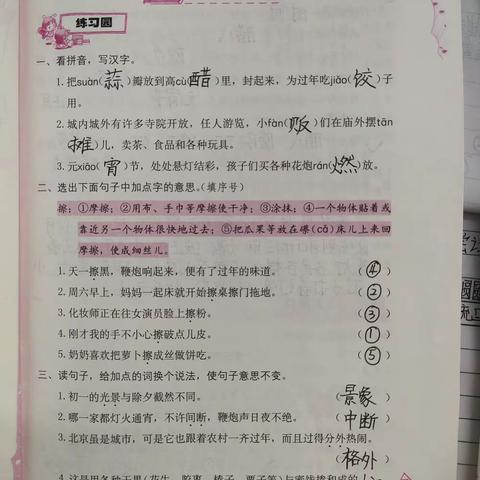 练习园
一、看拼音，写汉字。
1.把suàn(蒜)瓣放到高cù(醋)里，封起来，为过年吃jiǎo(饺)子
用。
2.城内城外有许多寺院开放，任人游览，小fàn(贩)们在庙外摆tān
(摊)儿，卖茶、食品和各种玩具。
3.元xiāo(宵)节，处处悬灯结彩，孩子们买各种花炮rán(燃)放。
二、选出下面句子中加点字的意思。(填序号)
擦：①摩擦；②用布、手巾等摩擦使干净；③涂抹；④一个物体贴着或
靠近另一个物体很快地过去；⑤把瓜果等放在礤(cǎ)床儿上来回
摩擦，使成细丝儿。
1.天一擦黑，鞭炮响起来，便有了过年的味道。(④)
2.周六早上，妈妈一起床就开始擦桌擦门拖地。(②)
3.化妆师正在往女演员脸上擦粉。(③)
4.刚才我的手不小心擦破点儿皮。(①)
5.奶奶喜欢把萝卜擦成丝做饼吃。(⑤)
三、读句子，给加点的词换个说法，使句子意思不变。
1.初一的光景与除夕截然不同。(景象)
2.哪一家都灯火通宵，不许间断，鞭炮声日夜不绝。(中断)
3.北京虽是城市，可是它也跟着农村一齐过年，而且过得分外热闹。
(格外)
4.这是用各种干果(花生、胶枣、榛子、栗子等)与蜜饯掺和成的